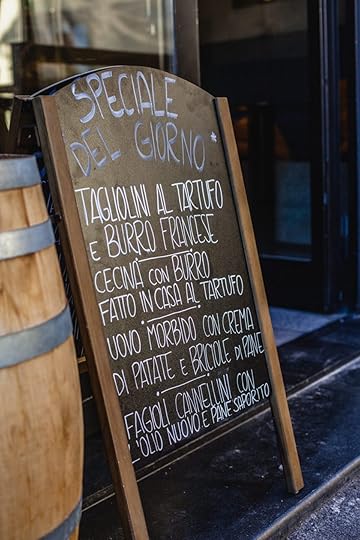 SPECIALE
DEL GIORNO *
TAGLIOLINI AL TARTUFO
E BURRO FRANCESE
CECINA CON BURRO
FATTO IN CASA AL TARTUFO
UOVO MORBIDO CON CREMA
DI PATATE E BRICIOLE DI PANE
FAGIOLI CANNELLINI CON
L'OLIO NUOVO E PANE SAPORITO